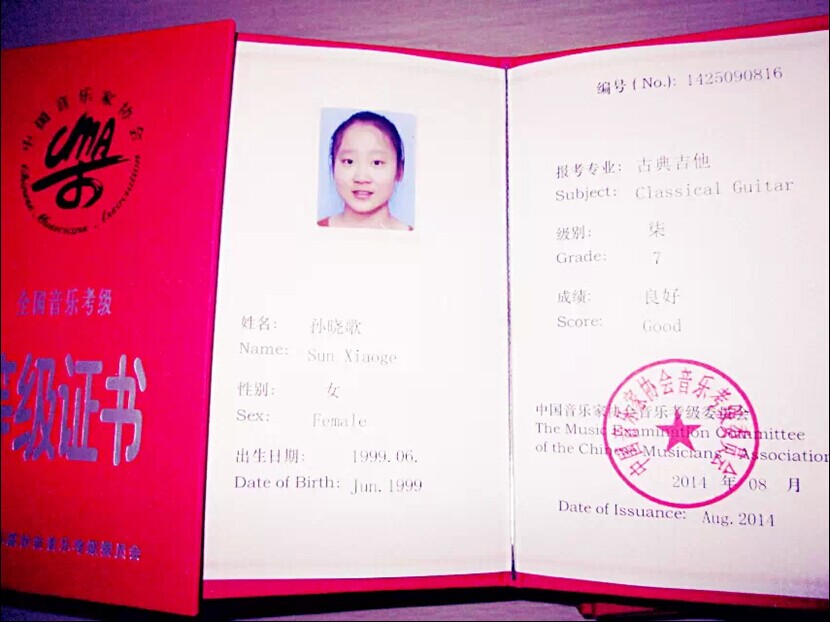 中国音乐家协会
CMA
Chinese Musicians Association
全国音乐考级
等级证书
姓名： 孙晓歌
Name: Sun Xiaoge
性别： 女
Sex: Female
出生日期： 1999.06.
Date of Birth: Jun.1999
编号 (No.): 1425090816
报考专业： 古典吉他
Subject: Classical Guitar
级别： 柒
Grade: 7
成绩： 良好
Score: Good
中国音乐家协会音乐考级委员会
The Music Examination Committee
of the Chinese Musicians' Association
2014 年 08 月
Date of Issuance: Aug.2014
中国音乐家协会音乐考级委员会